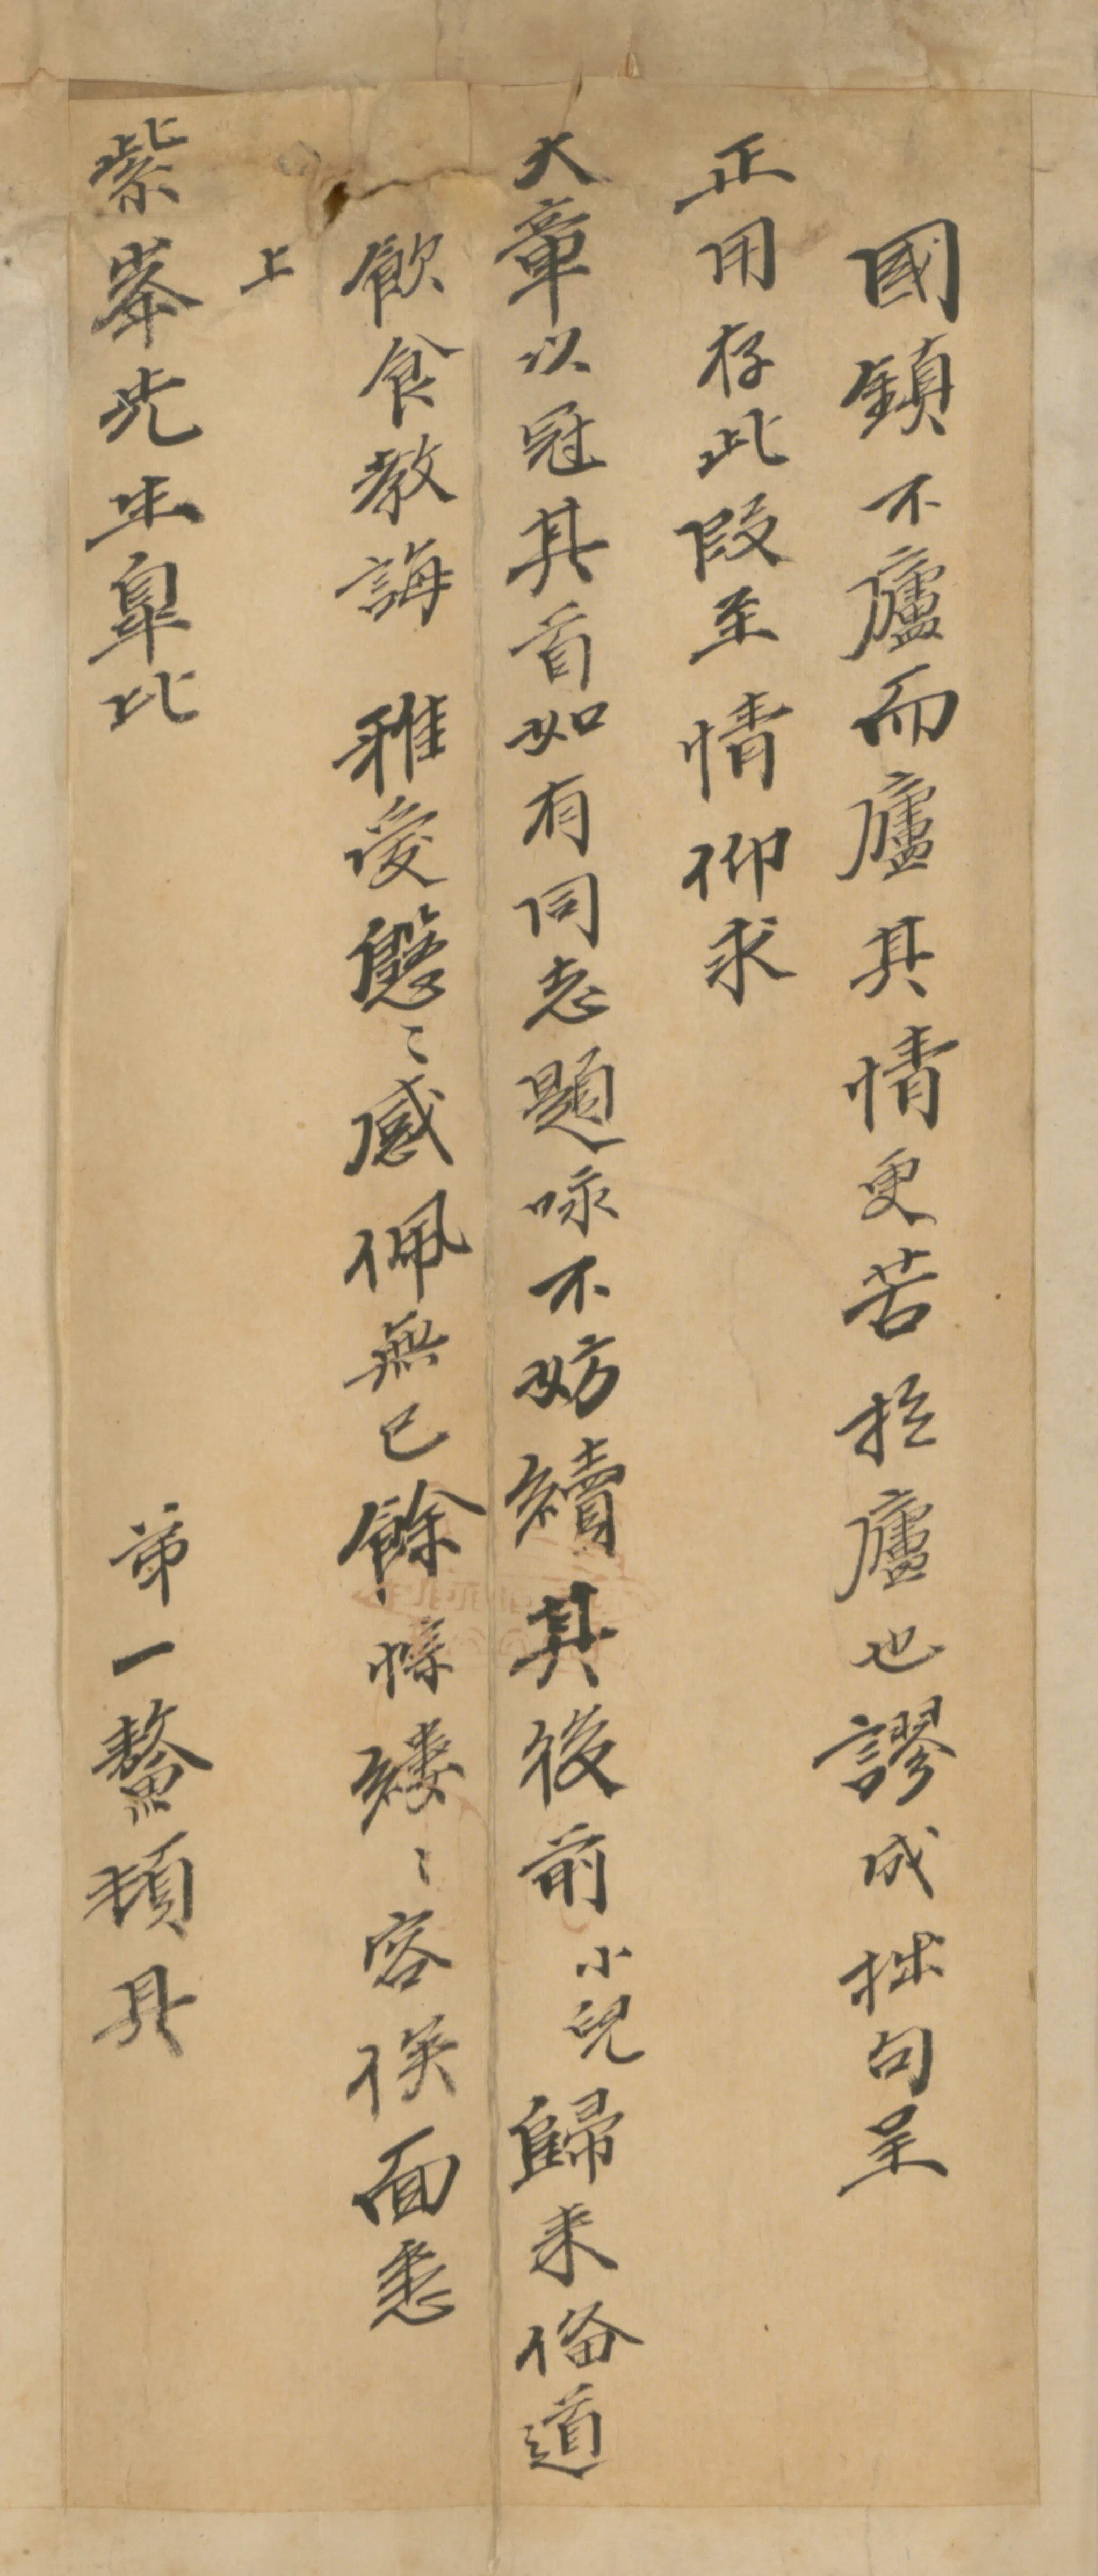 國鎮不廬而廬其情更苦於廬也謬成拙句呈
正用存此段至情仰求
大章以冠其首如有同志題咏不妨續其後前小兒歸来俻道
飲食教誨 雅愛慇〻感佩無已餘悰縷〻容俟面悉
上
紫峯先生皐比
弟一鰲頓具